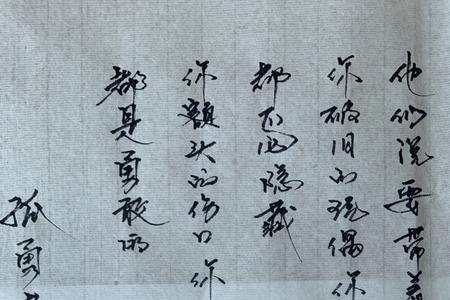 他们说要带着
你破旧的玩偶你
都不必隐藏
你额头的伤口你
都是勇敢的
孤勇